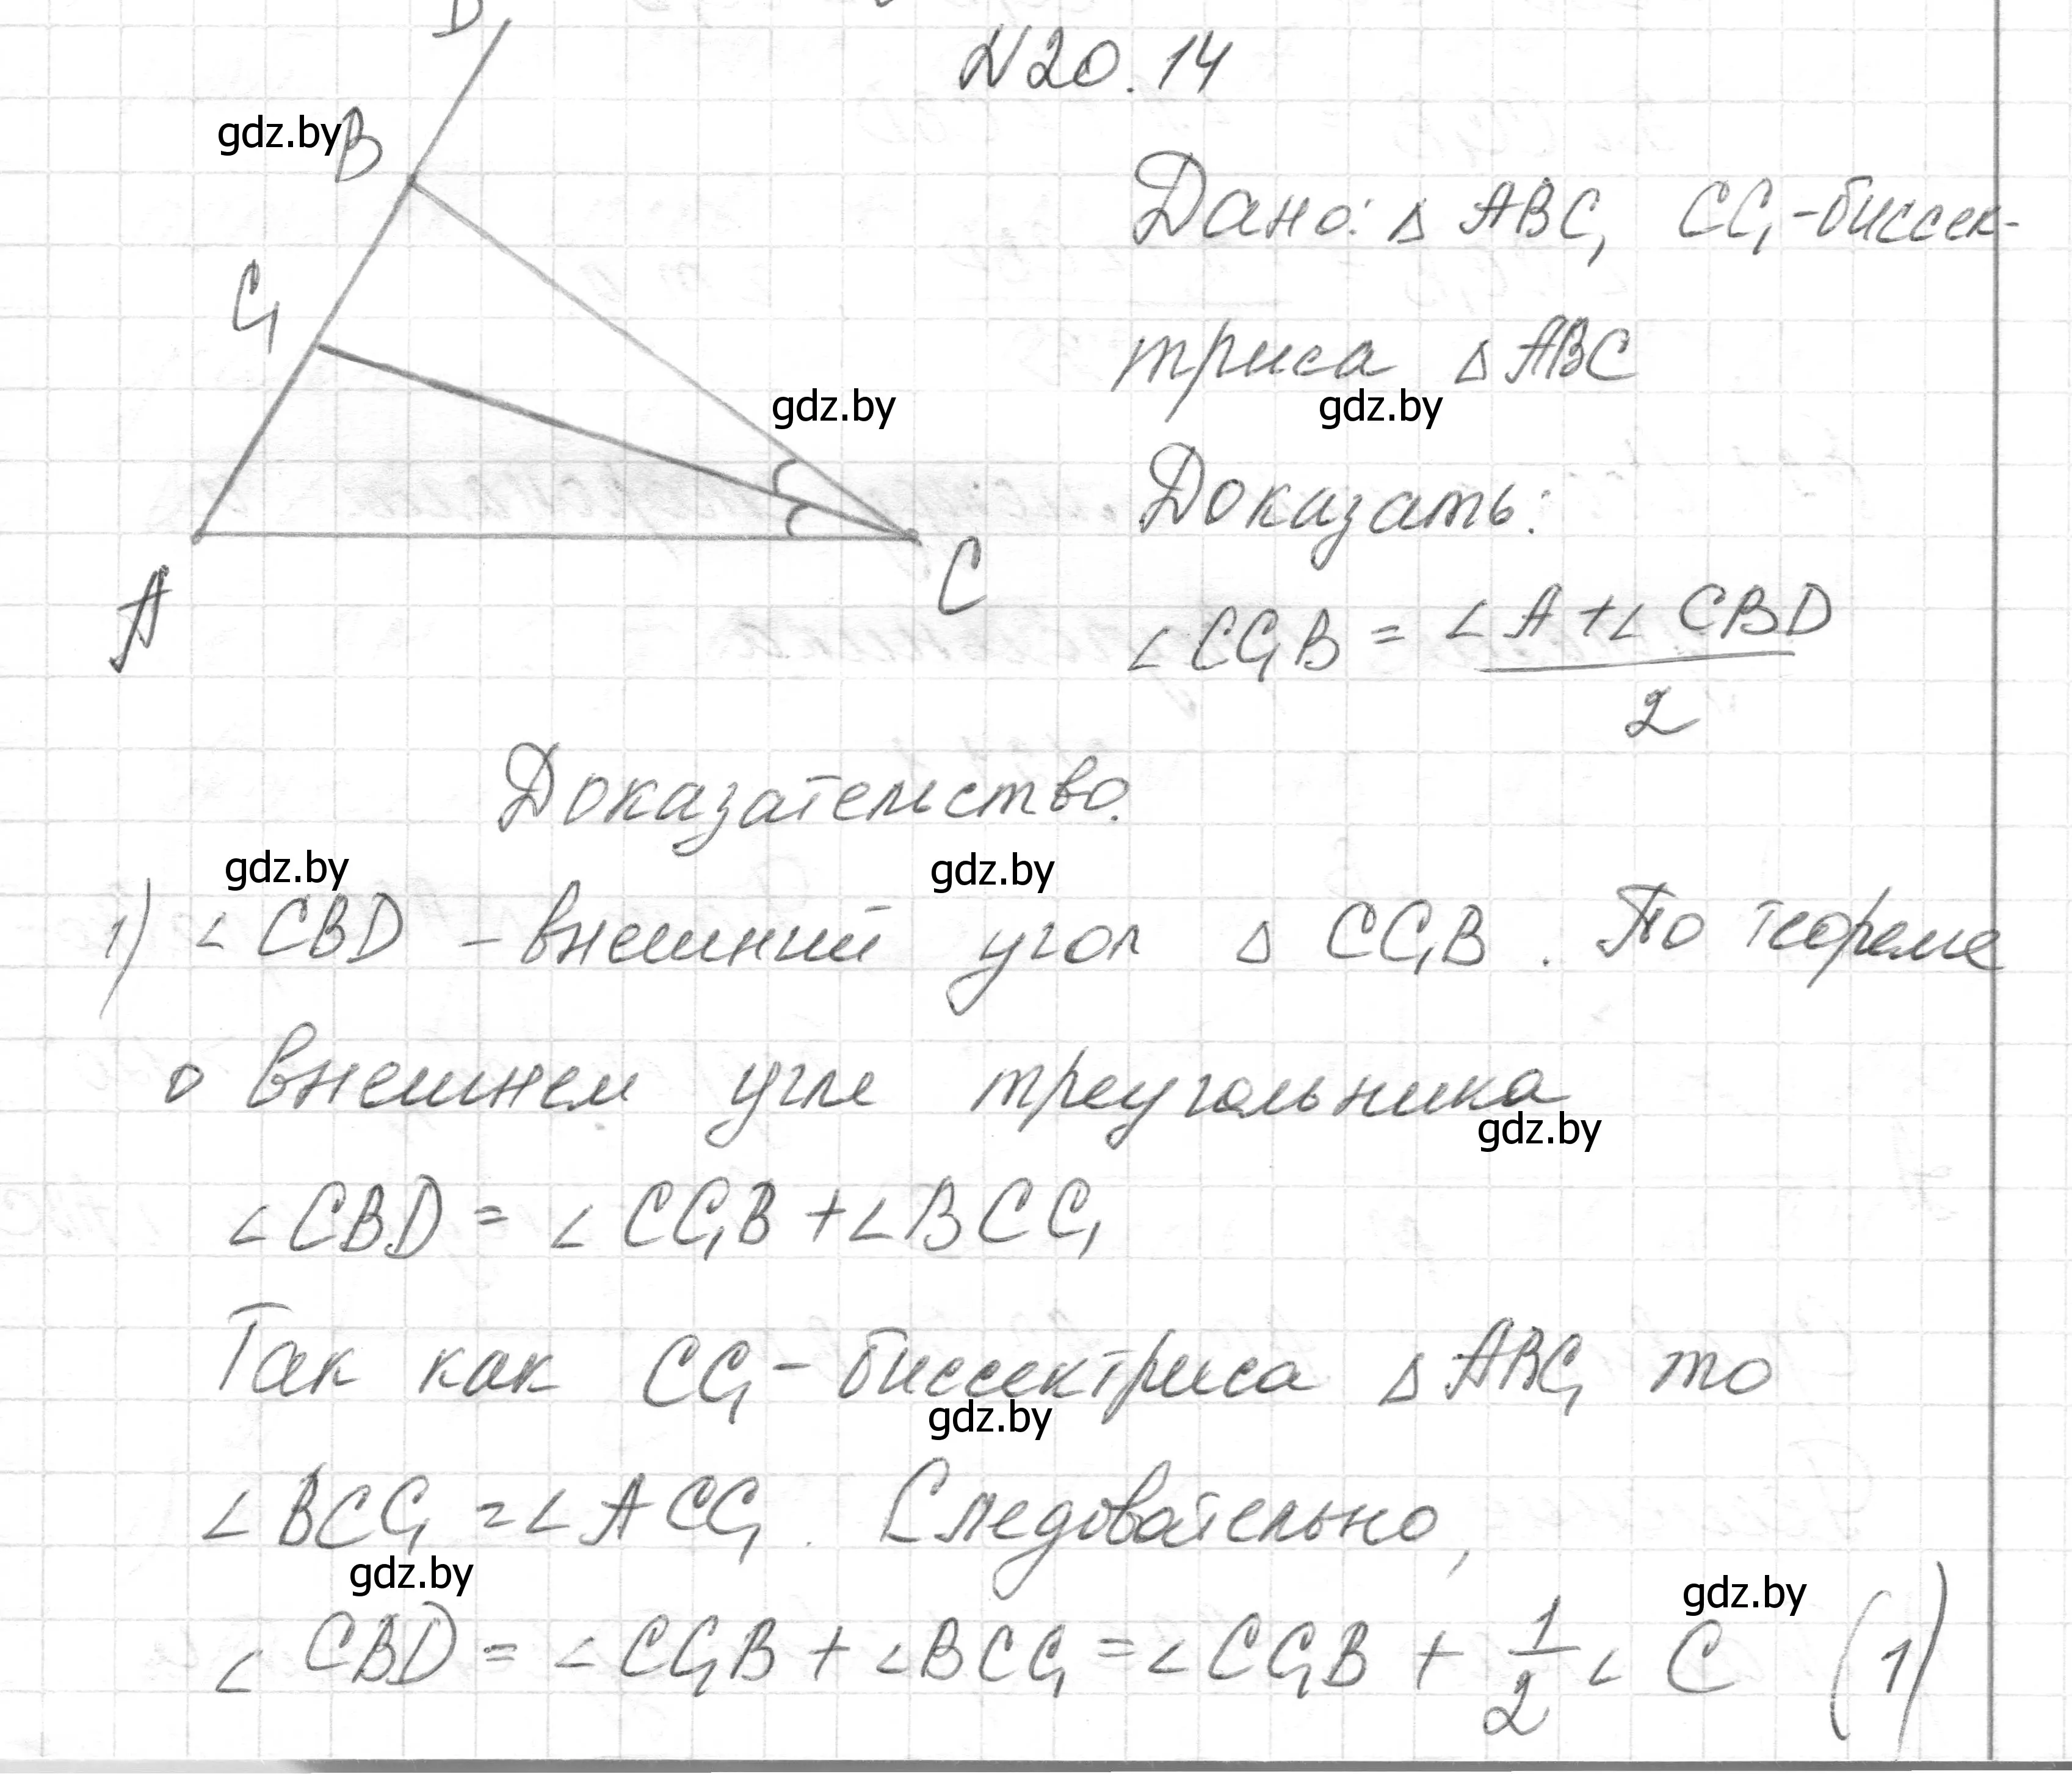 D
N 20.14
gdz.by
B
Дано: Δ ABC, CC₁ - биссек-
C₁
триса Δ ABC
gdz.by
gdz.by
Доказать:
C
A
∠ CC₁B = (∠ A + ∠ CBD) / 2
Доказательство.
gdz.by
gdz.by
1) ∠ CBD - внешний угол Δ CC₁B. По теореме
о внешнем угле треугольника
gdz.by
∠ CBD = ∠ CC₁B + ∠ BCC₁
Так как CC₁ - биссектриса Δ ABC, то
gdz.by
∠ BCC₁ = ∠ ACC₁. Следовательно,
gdz.by
gdz.by
∠ CBD = ∠ CC₁B + ∠ BCC₁ = ∠ CC₁B + 1/2 ∠ C (1)